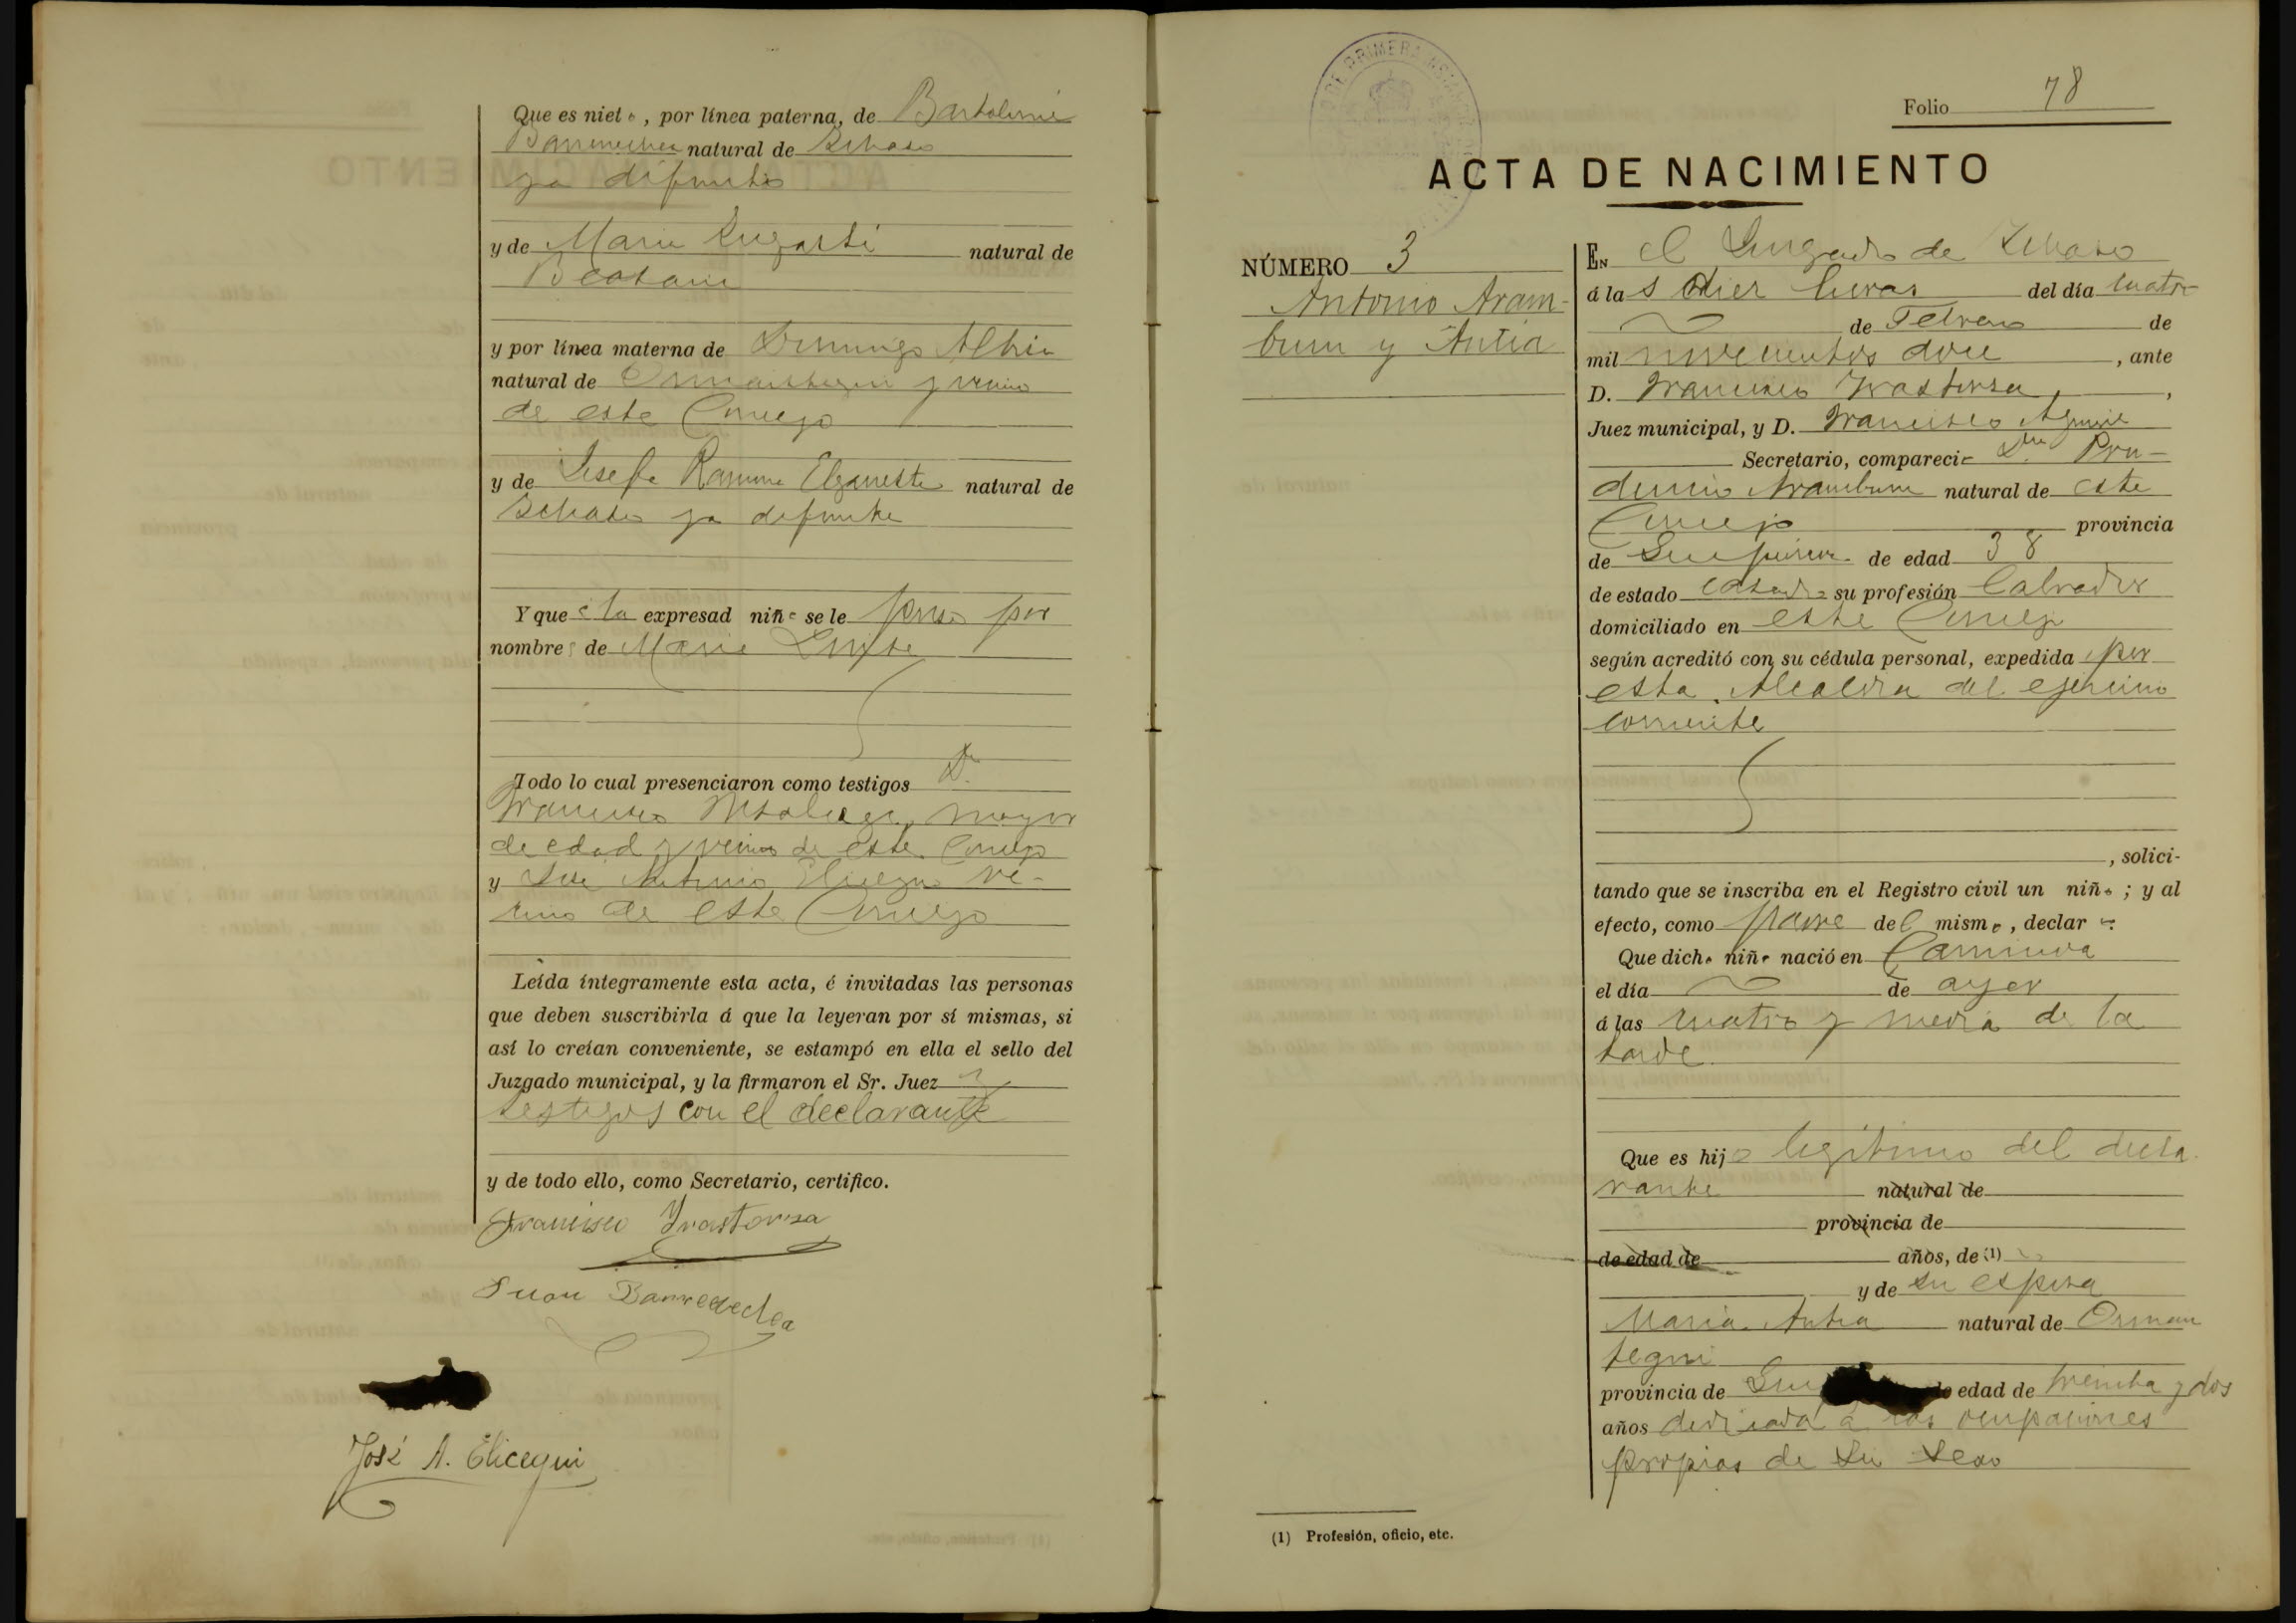 Que es nieto, por línea paterna, de Bartolomé
Barrenechea natural de
ya difunto
y de Maria natural de
Beasain
y por línea materna de Domingo
natural de Ormaiztegui y vecino
de este Concejo
y de Josefa Ramona natural de
ya difunta
Y que a la expresad niña se le puso por
nombre de Maria
Todo lo cual presenciaron como testigos Dn
Francisco mayor
de edad y vecino de este Concejo
y José Antonio Elicegui ve-
cino de este Concejo
Leída íntegramente esta acta, é invitadas las personas
que deben suscribirla á que la leyeran por sí mismas, si
así lo creían conveniente, se estampó en ella el sello del
Juzgado municipal, y la firmaron el Sr. Juez y
testigos con el declarante
y de todo ello, como Secretario, certifico.
Francisco Yrastorza
Juan Barrenechea
José A. Elicegui
Folio 78
ACTA DE NACIMIENTO
NÚMERO 3
Antonio Aram-
buru y Antia
EN el Juzgado de
á las diez horas del día cuatro
de Febrero de
mil novecientos doce, ante
D. Francisco Yrastorza,
Juez municipal, y D. Francisco Aguirre
Secretario, compareció Dn Pru-
dencio Aramburu natural de este
Concejo provincia
de Guipúzcoa de edad 38
de estado casado su profesión labrador
domiciliado en este Concejo
según acreditó con su cédula personal, expedida por
esta Alcaldia del ejercicio
corriente
, solici-
tando que se inscriba en el Registro civil un niño; y al
efecto, como padre del mismo, declaró:
Que dicho niño nació en
el día de ayer
á las cuatro y media de la
tarde
Que es hijo legítimo del decla-
rante natural de
provincia de
de edad de años, de (1)
y de su esposa
Maria Antia natural de Ormaiz
tegui
provincia de Gui de edad de treinta y dos
años dedicada á las ocupaciones
propias de su sexo
(1) Profesión, oficio, etc.